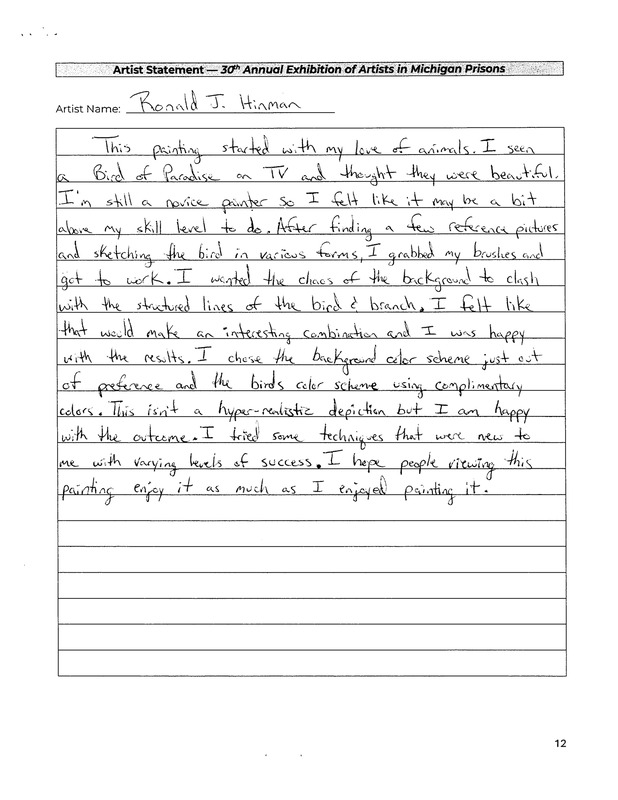 Artist Statement — 30th Annual Exhibition of Artists in Michigan Prisons
Artist Name: Ronald J. Hinman
This painting started with my love of animals. I seen
a Bird of Paradise on TV and thought they were beautiful.
I'm still a novice painter so I felt like it may be a bit
above my skill level to do. After finding a few reference pictures
and sketching the bird in various forms, I grabbed my brushes and
got to work. I wanted the chaos of the background to clash
with the structured lines of the bird & branch. I felt like
that would make an interesting combination and I was happy
with the results. I chose the background color scheme just out
of preference and the birds color scheme using complimentary
colors. This isn't a hyper-realistic depiction but I am happy
with the outcome. I tried some techniques that were new to
me with varying levels of success. I hope people viewing this
painting enjoy it as much as I enjoyed painting it.
12